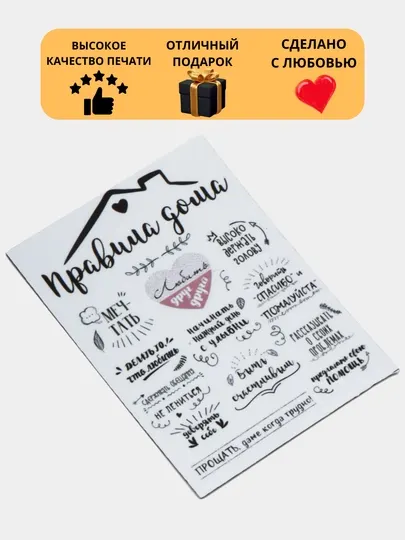 ВЫСОКОЕ
КАЧЕСТВО ПЕЧАТИ
ОТЛИЧНЫЙ
ПОДАРОК
СДЕЛАНО
С ЛЮБОВЬЮ
Правила дома
МЕЧ-
ТАТЬ
Любить
друг
друга
высоко
держать
голову
говорить
"СПАСИБО" и
"ПОЖАЛУЙСТА"
ДЕЛАТЬ ТО,
что любишь
Начинать
каждый день
с улыбки
РАССКАЗЫВАТЬ
О СВОИХ
ПРОБЛЕМАХ
НЕ ЛЕНИТЬСЯ
быть
счастливым
предлагать свою
ПОМОЩЬ
доверять
себе
ПРОЩАТЬ, даже когда трудно!